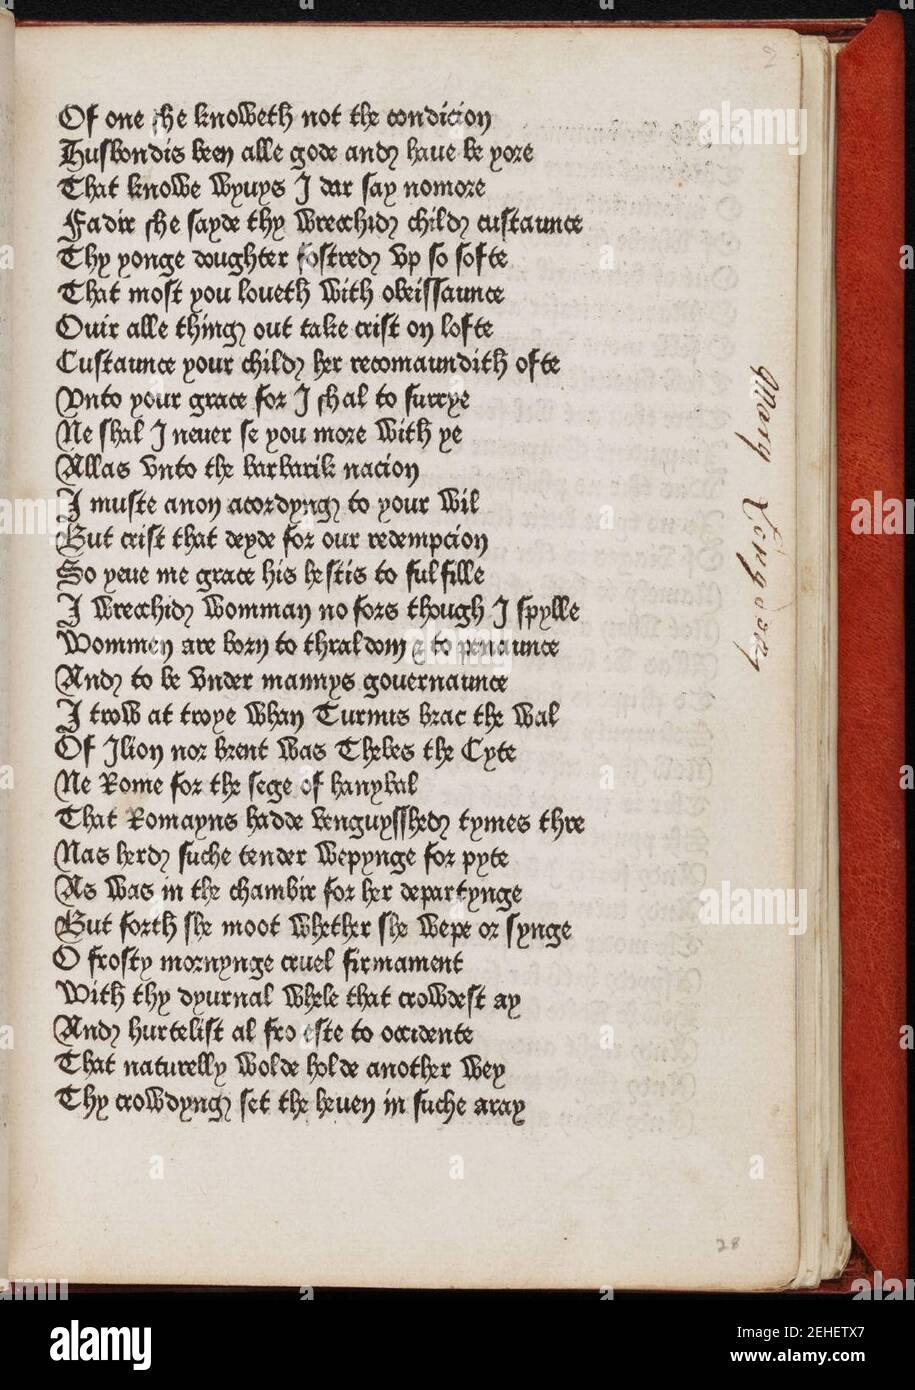 Of one she knoweth not the condicion
Husbondis been alle gode and haue be yore
That knowe wyuys I dar say nomore
Fadir she sayde thy wrecchid child custaunce
Thy yonge doughter fostred vp so softe
That most you loueth with obeissaunce
Ouir alle thing out take crist on lofte
Custaunce your child her recomaundith ofte
Vnto your grace for I shal to surrye
Ne shal I neuer se you more with ye
Allas vnto the barbarik nacion
I muste anon acordyng to your wil
But crist that deyde for our redempcion
So yeue me grace his hestis to fulfille
I wrecchid womman no fors though I spylle
Wommen are born to thraldom & to penaunce
And to be vnder mannys gouernaunce
I trow at troye whan Turmus brac the wal
Of Ilion nor brent was Thebes the Cyte
Ne Rome for the sege of hanybal
That Romayns hadde venguysshed tymes thre
Nas herd suche tender wepynge for pyte
As was in the chambir for her departynge
But forth she moot whether she wepe or synge
O frosty mornynge cruel firmament
With thy dyurnal whele that crowdest ay
And hurtelist al fro este to occidente
That naturelly wolde holde another wey
Thy crowdyng set the heuen in suche aray
2
Mary
28
alamy
2EHETX7
www.alamy.com